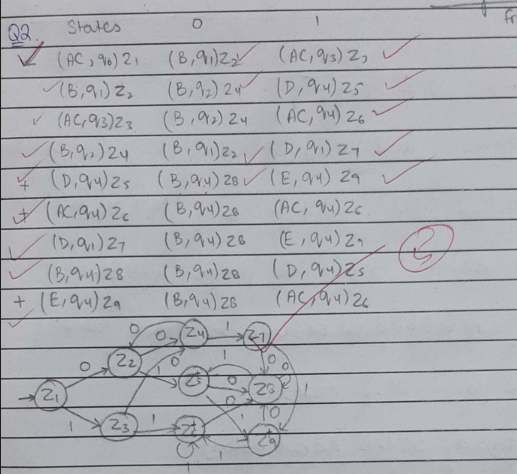 Q2. States 0 1
(AC, q0) Z1 (B, q1) Z2 (AC, q3) Z3
(B, q1) Z2 (B, q2) Z4 (D, q4) Z5
(AC, q3) Z3 (B, q2) Z4 (AC, q4) Z6
(B, q2) Z4 (B, q1) Z2 (D, q1) Z7
+ (D, q4) Z5 (B, q4) Z8 (E, q4) Z9
+ (AC, q4) Z6 (B, q4) Z8 (AC, q4) Z6
(D, q1) Z7 (B, q4) Z8 (E, q4) Z9
(B, q4) Z8 (B, q4) Z8 (D, q4) Z5
+ (E, q4) Z9 (B, q4) Z8 (AC, q4) Z6
0 Z4 1 Z7
0 Z2 0 1 0 0
Z1 1 Z5 0 Z8 1
1 Z3 1 Z6 0 1 0 Z9
1